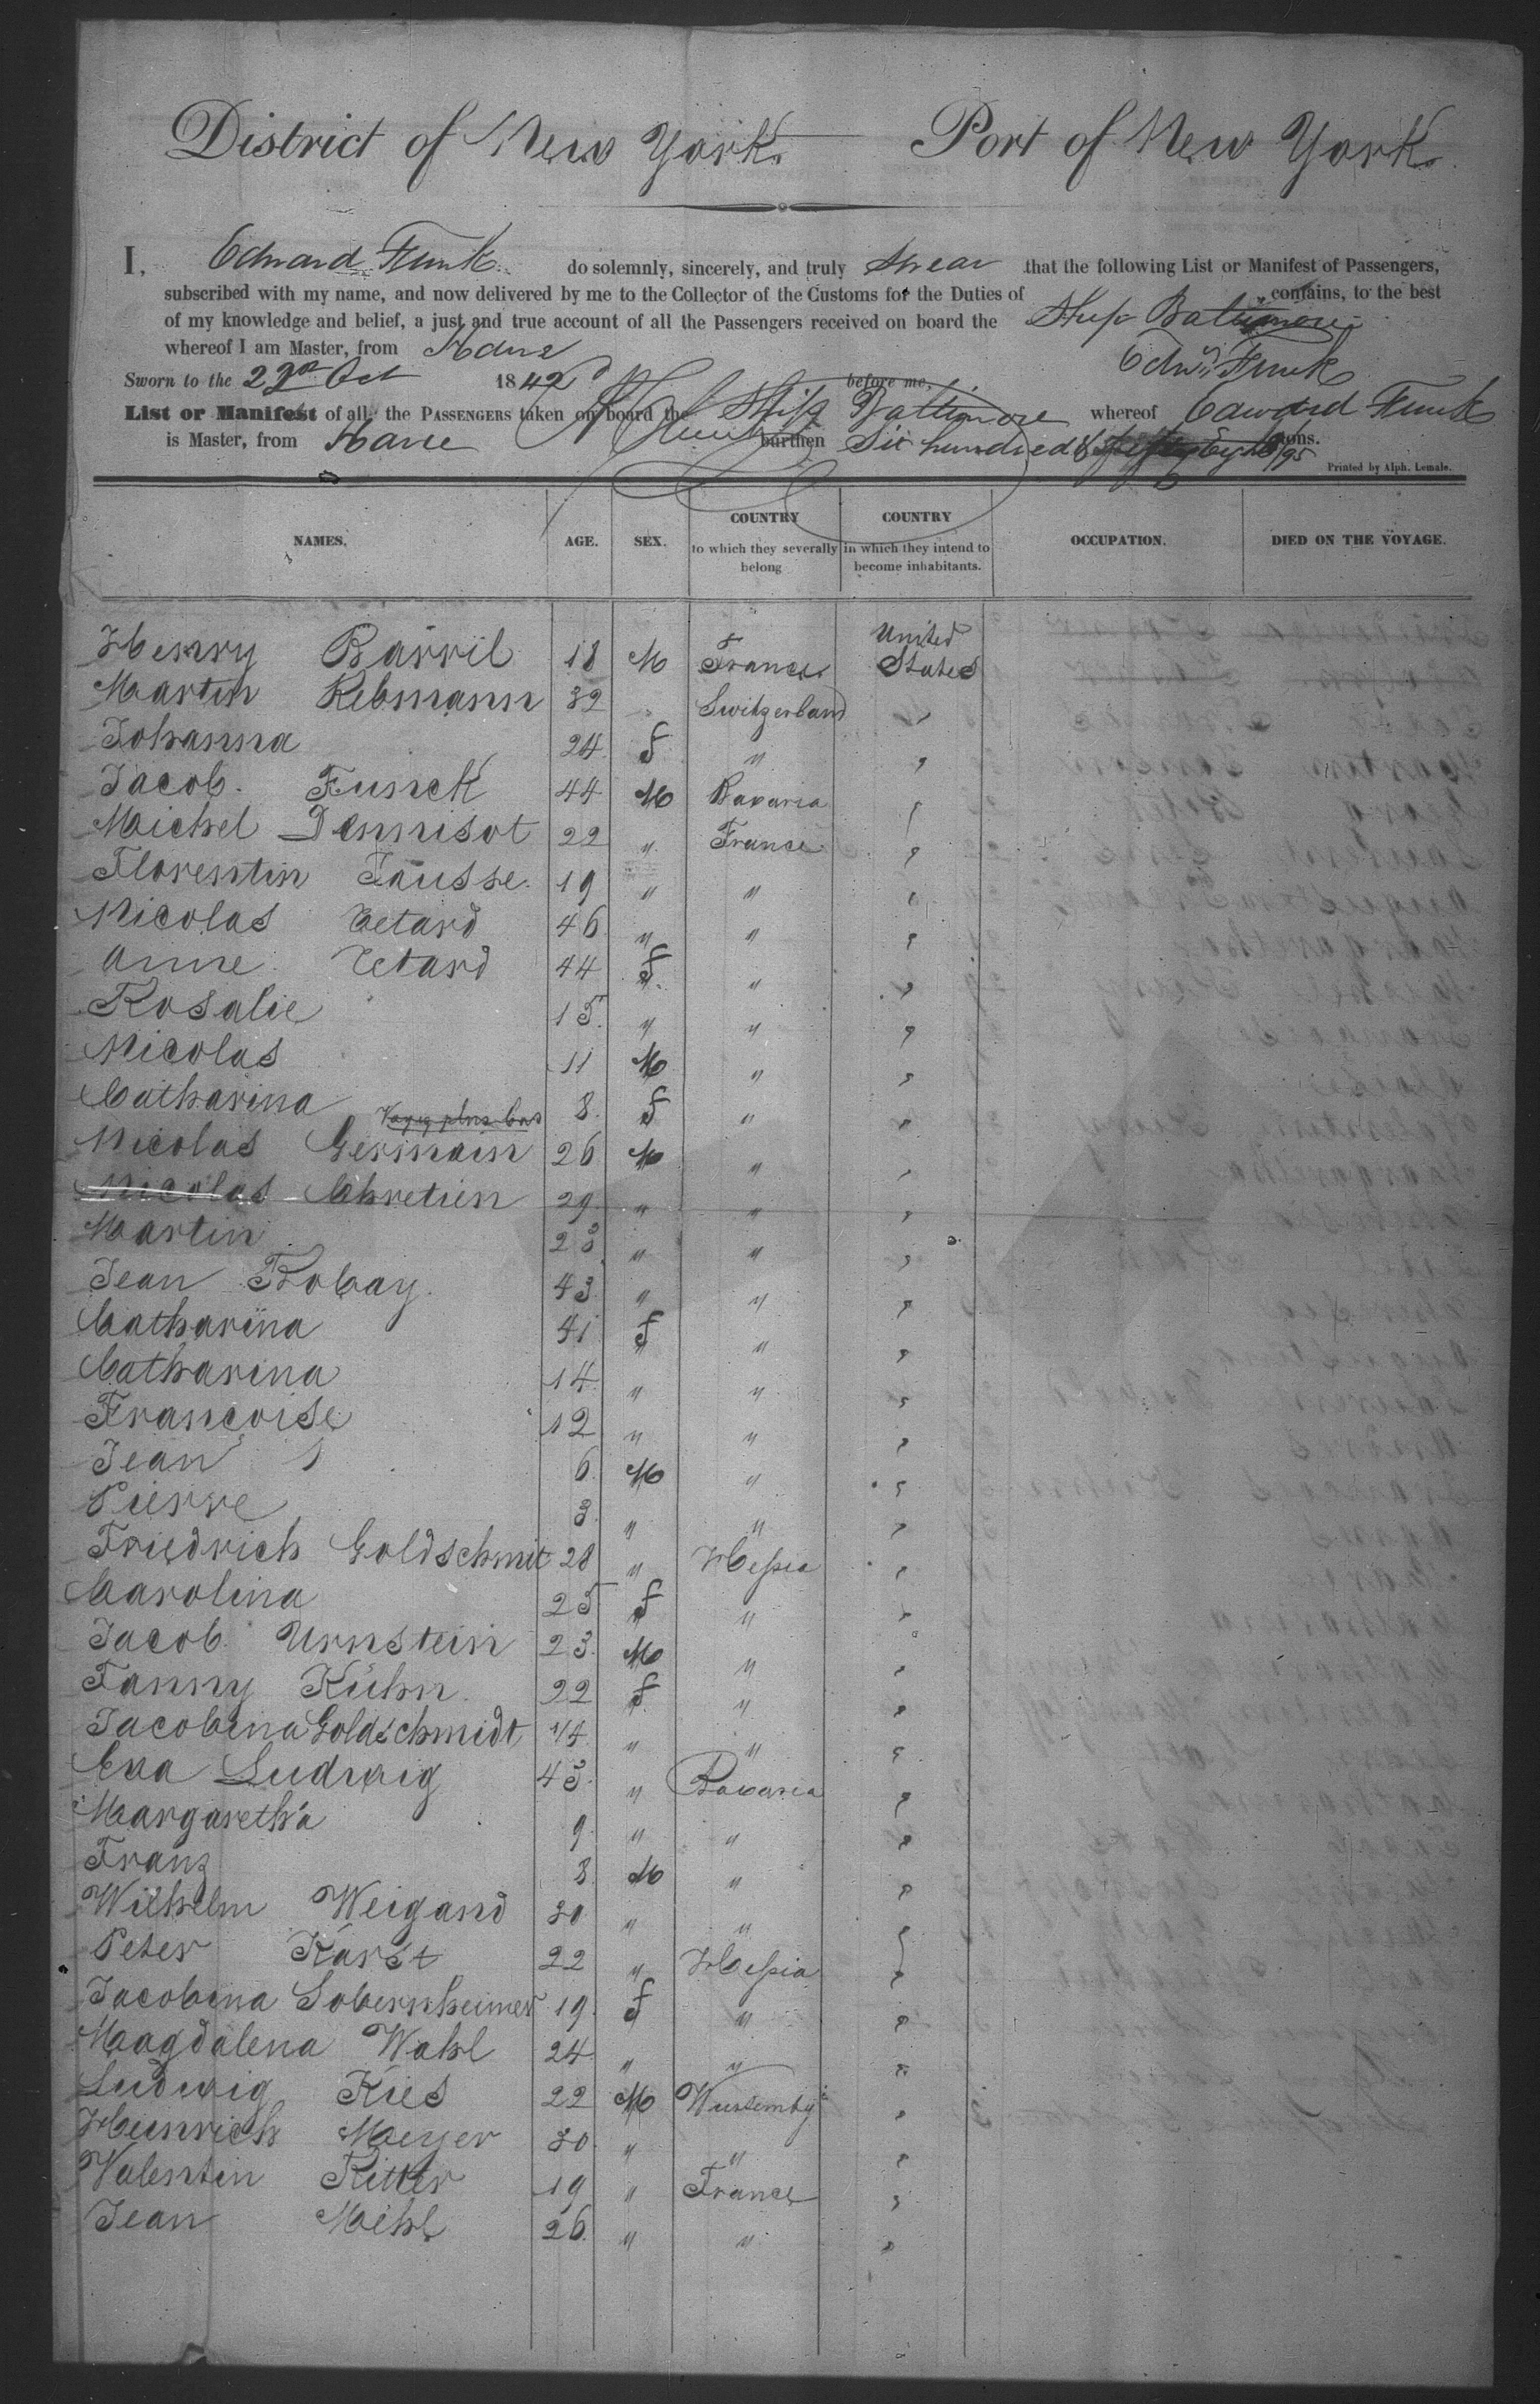 District of New York. Port of New York.
I, Edward Funk do solemnly, sincerely, and truly Swear that the following List or Manifest of Passengers,
subscribed with my name, and now delivered by me to the Collector of the Customs for the Duties of contains, to the best
of my knowledge and belief, a just and true account of all the Passengers received on board the Ship Baltimore
whereof I am Master, from Havre
Edwd Funk
Sworn to the Oct 1842 before me,
List or Manifest of all the PASSENGERS taken on board the Ship Baltimore whereof Edward Funk
is Master, from Havre burthen Six hundred & tons.
Printed by Alph. Lemale.
NAMES. AGE. SEX. COUNTRY to which they severally belong COUNTRY in which they intend to become inhabitants. OCCUPATION. DIED ON THE VOYAGE.
Henry Barril 18 M France United States
Martin Rebmann 32 Switzerland "
Johanna 24 F " "
Jacob Funck 44 M Bavaria "
Michel Dennisot 22 " France "
Florentin Fausse 19 " " "
Nicolas Tetard 46 " " "
Anne Tetard 44 F " "
Rosalie 15 " " "
Nicolas 11 M " "
Catharina 8 F " "
Nicolas Germain 26 M " "
Nicolas Chretien 29 " " "
Martin 23 " " "
Jean Robay 43 " " "
Catharina 41 F " "
Catharina 14 " " "
Francoise 12 " " "
Jean 6 M " "
Pierre 3 " " "
Friedrich Goldschmit 28 " Hessia "
Carolina 25 F " "
Jacob Urnstein 23 M " "
Fanny Kühn 22 F " "
Jacobina Goldschmidt " " "
Eva Ludwig 45 " Bavaria "
Margaretha 9 " " "
Franz 8 M " "
Wilhelm Weigand 30 " " "
Peter Karst 22 " Hessia "
Jacobina Sobernheimer 19 F " "
Magdalena Wahl 24 " " "
Ludwig Kies 22 M Wurtembg "
Heinrich Meyer 30 " " "
Valentin Ritter 19 " France "
Jean Mehl 26 " " "